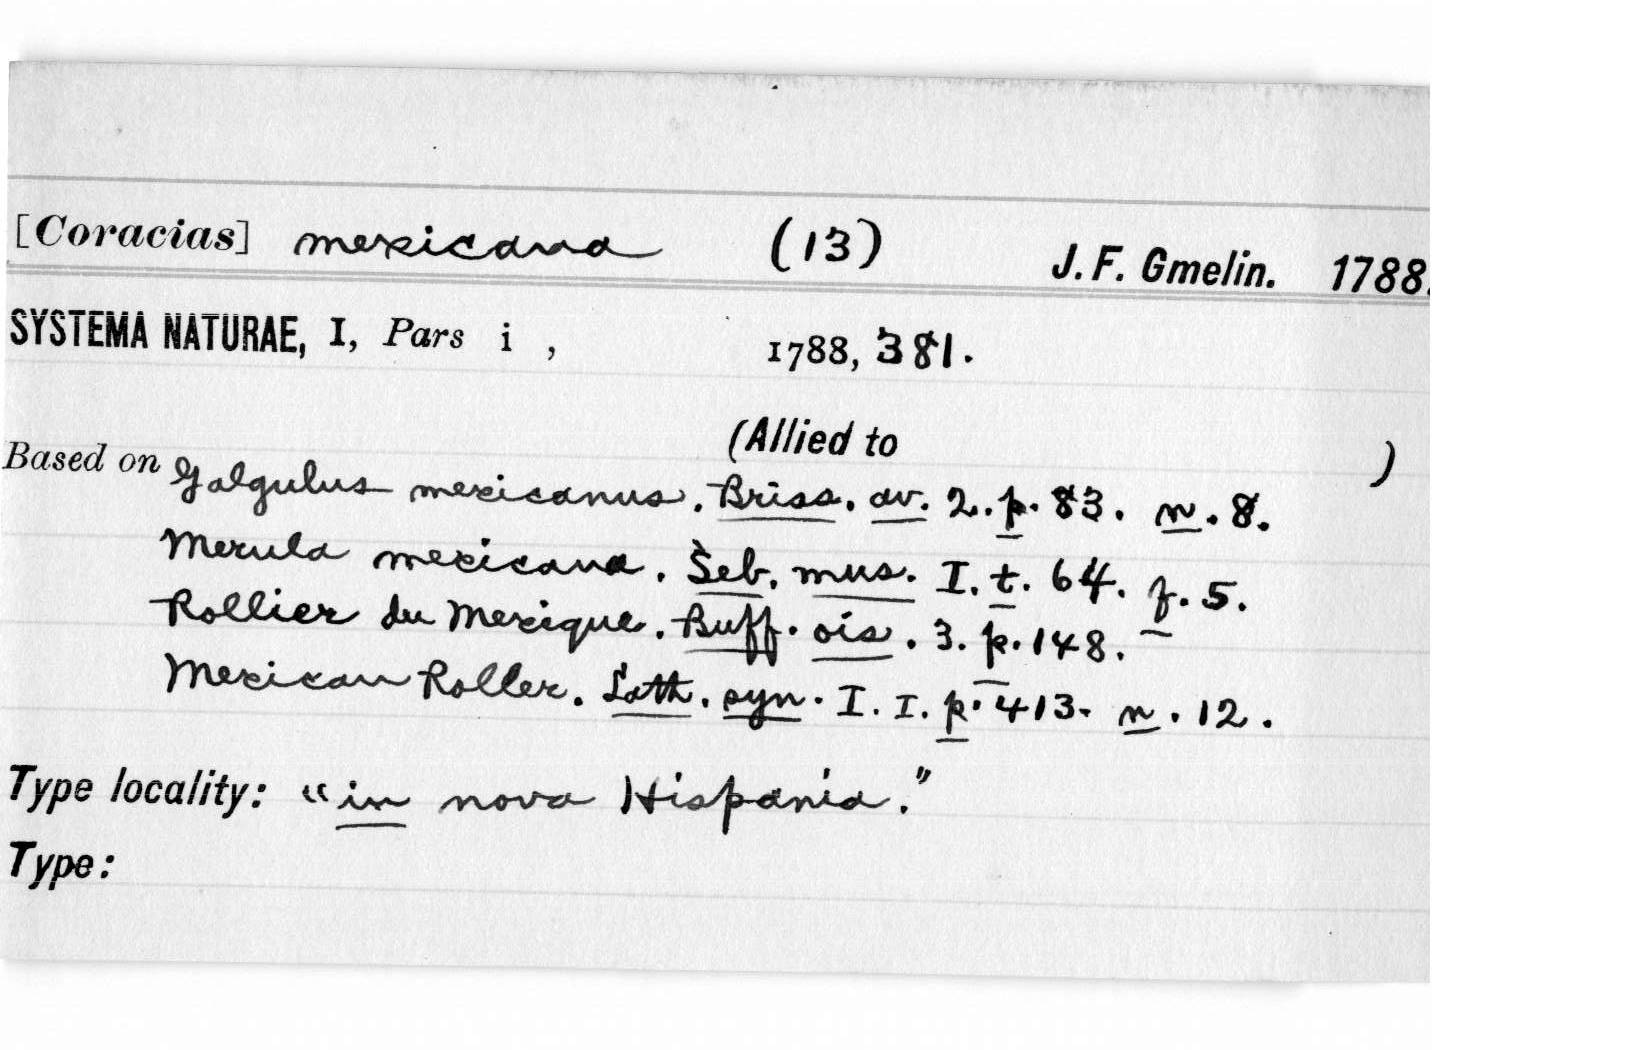 [Coracias] mexicana (13) J. F. Gmelin. 1788.
SYSTEMA NATURAE, I, Pars i , 1788, 381.
(Allied to )
Based on Galgulus mexicanus. Briss. av. 2. p. 83. n. 8.
Merula mexicana. Seb. mus. I. t. 64. f. 5.
Rollier du Mexique. Buff. ois. 3. p. 148.
Mexican Roller. Lath. syn. I. I. p. 413. n. 12.
Type locality: "in nova Hispania."
Type: